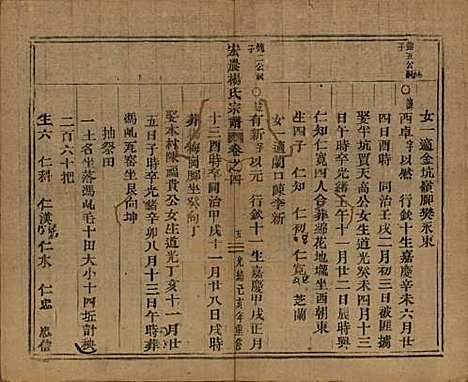 女一適金坑嶺腳樊永東
酉卓字以然 行欽十生嘉慶辛未六月廿
四日酉時 同治壬戌二月初三日被匪擄
娶半坑賈天高公女生道光癸未四月十三
日午時卒光緒壬午十一月廿二日辰時與
仁知仁寬四人合葬綿花地壠坐西朝東
生二 仁知 仁寬 芝蘭
女一適蘭口陳李新
有新字以元 行欽十一生嘉慶甲戌正月
宏農楊氏宗譜 卷之四
光緒己亥年重修
十三酉時卒同治甲戌十一月廿八日戌時
葬梅岡腳坐癸向丁
娶本村陳福貴公女生道光丁亥十一月廿
五日子時卒光緒辛卯八月十三日午時葬
馮𡶶瓦窰坐艮向坤
抽祭田
一土名坐落馮𡶶毛十田大小十四坵計秧
二百六十把
生六 仁科 仁漢 仁水 仁忠 忠信